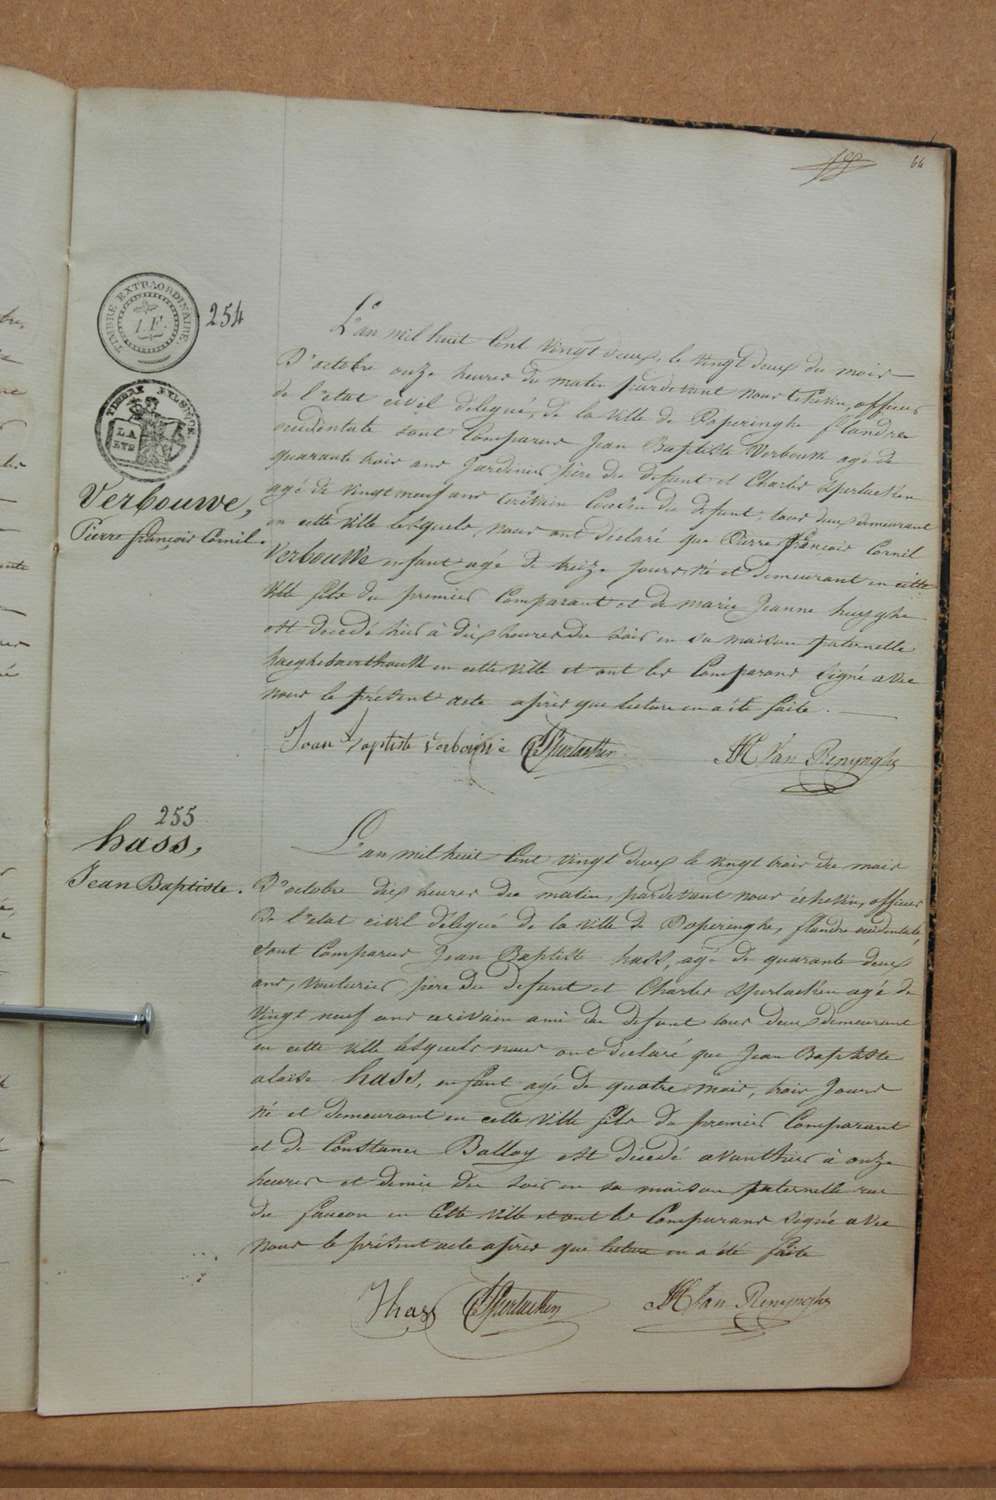 66
TIMBRE EXTRAORDINAIRE
1 F.
254
LA
Verbouwe,
Pierre françois Cornil.
L'an mil huit Cent vingt deux, le vingt deux du mois
D'octobre onze heures du matin pardevant nous Echevin, officier
de l'etat civil delegué, de la ville de Poperinghe flandre
occidentale sont Comparus Jean Baptiste Verbouwe agé de
quarante trois ans Jardinier père du defunt et Charles Sperlaeken
agé de vingt neuf ans Ecrivain Cousin du defunt, tous deux demeurant
en cette ville lesquels nous ont déclaré que Pierre françois Cornil
Verbouwe enfant agé de treize jours né et demeurant en cette
ville fils du premier Comparant et de marie Jeanne huyghe
est decedé hier à dix heures du soir en sa maison paternelle
en cette ville et ont les Comparans signé avec
nous le présent acte après que lecture en a été faite.
Jean Baptiste Verbouwe C Sperlaeken Van Renynghe
255
hass,
Jean Baptiste.
L'an mil huit Cent vingt deux le vingt trois du mois
D'octobre dix heures du matin, pardevant nous échevin, officier
De l'etat civil délegué de la ville de Poperinghe, flandre occidentale,
sont Comparus Jean Baptiste hass, agé de quarante deux
ans, Voiturier père du defunt et Charles Sperlaeken agé de
vingt neuf ans ecrivain ami du defunt tous deux demeurant
en cette ville lesquels nous ont declaré que Jean Baptiste
aloise hass, enfant agé de quatre mois, trois Jours
né et demeurant en cette ville fils du premier Comparant
et de Constance Balloy est decedé avanthier à onze
heures et demie du soir en sa maison paternelle rue
du faucon en Cette ville et ont les Comparans signé avec
nous le présent acte après que lecture en a été faite
J hass C Sperlaeken Van Renynghe